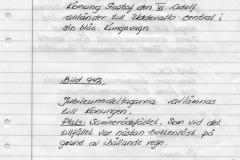 Konung Gustaf den VI Adolf
anländer till Uddevalla central i
sin blåa Kungavagn
Bild 942.
Jubileumsdeltagarna avlämnas
till Konungen.
Plats: Samnerödsfältet. Som vid det
tillfället var nästan bottenlöst på
grund av ihållande regn.